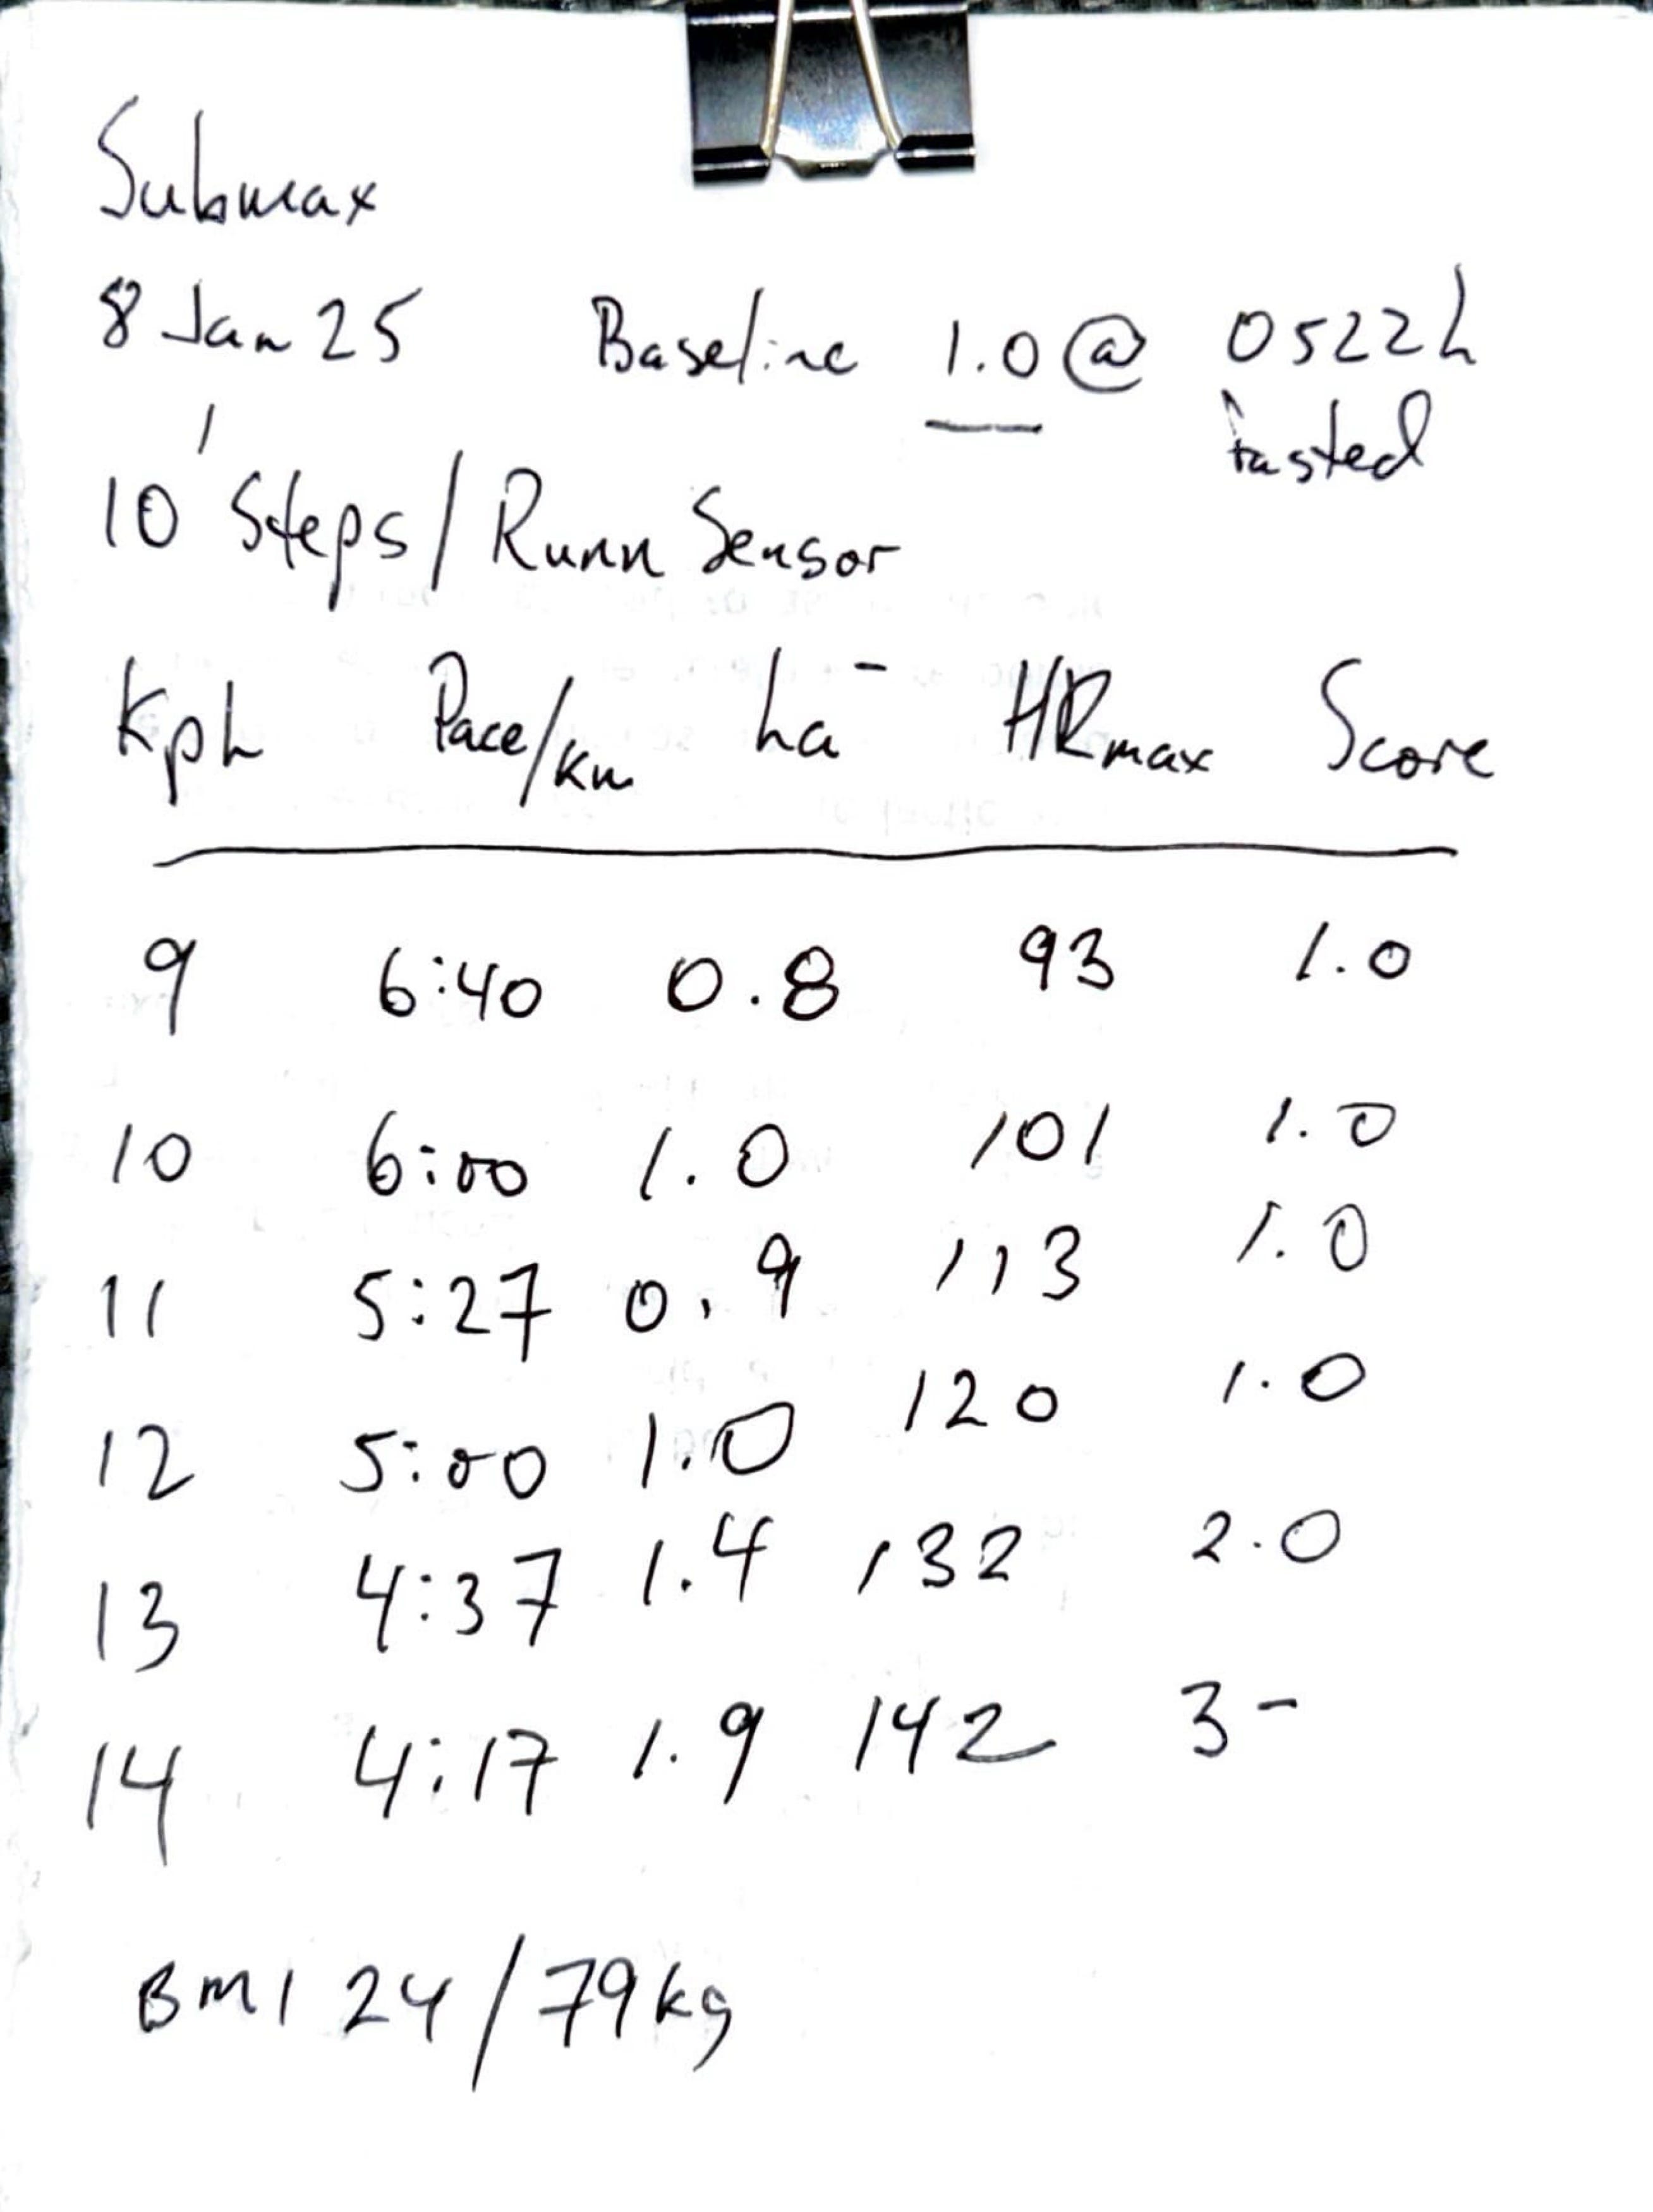 Submax
8 Jan 25 Baseline 1.0 @ 0522h
fasted
10' Steps / Runn Sensor
Kph Pace/km La⁻ HRmax Score
9 6:40 0.8 93 1.0
10 6:00 1.0 101 1.0
11 5:27 0.9 113 1.0
12 5:00 1.0 120 1.0
13 4:37 1.4 132 2.0
14 4:17 1.9 142 3-
BMI 24 / 79kg